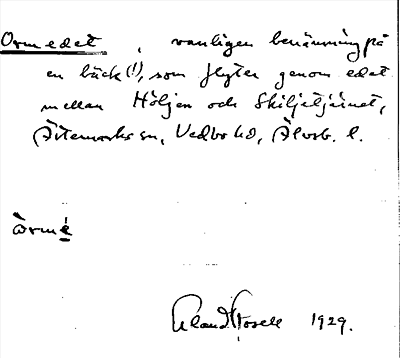 Ormedet, vanligen benämning på
en bäck (!), som flyter genom edet
mellan Höljen och Skiljetjärnet,
Ärtemarks sn, Vedbo hd, Älvsb. l.
òrmé
1929.